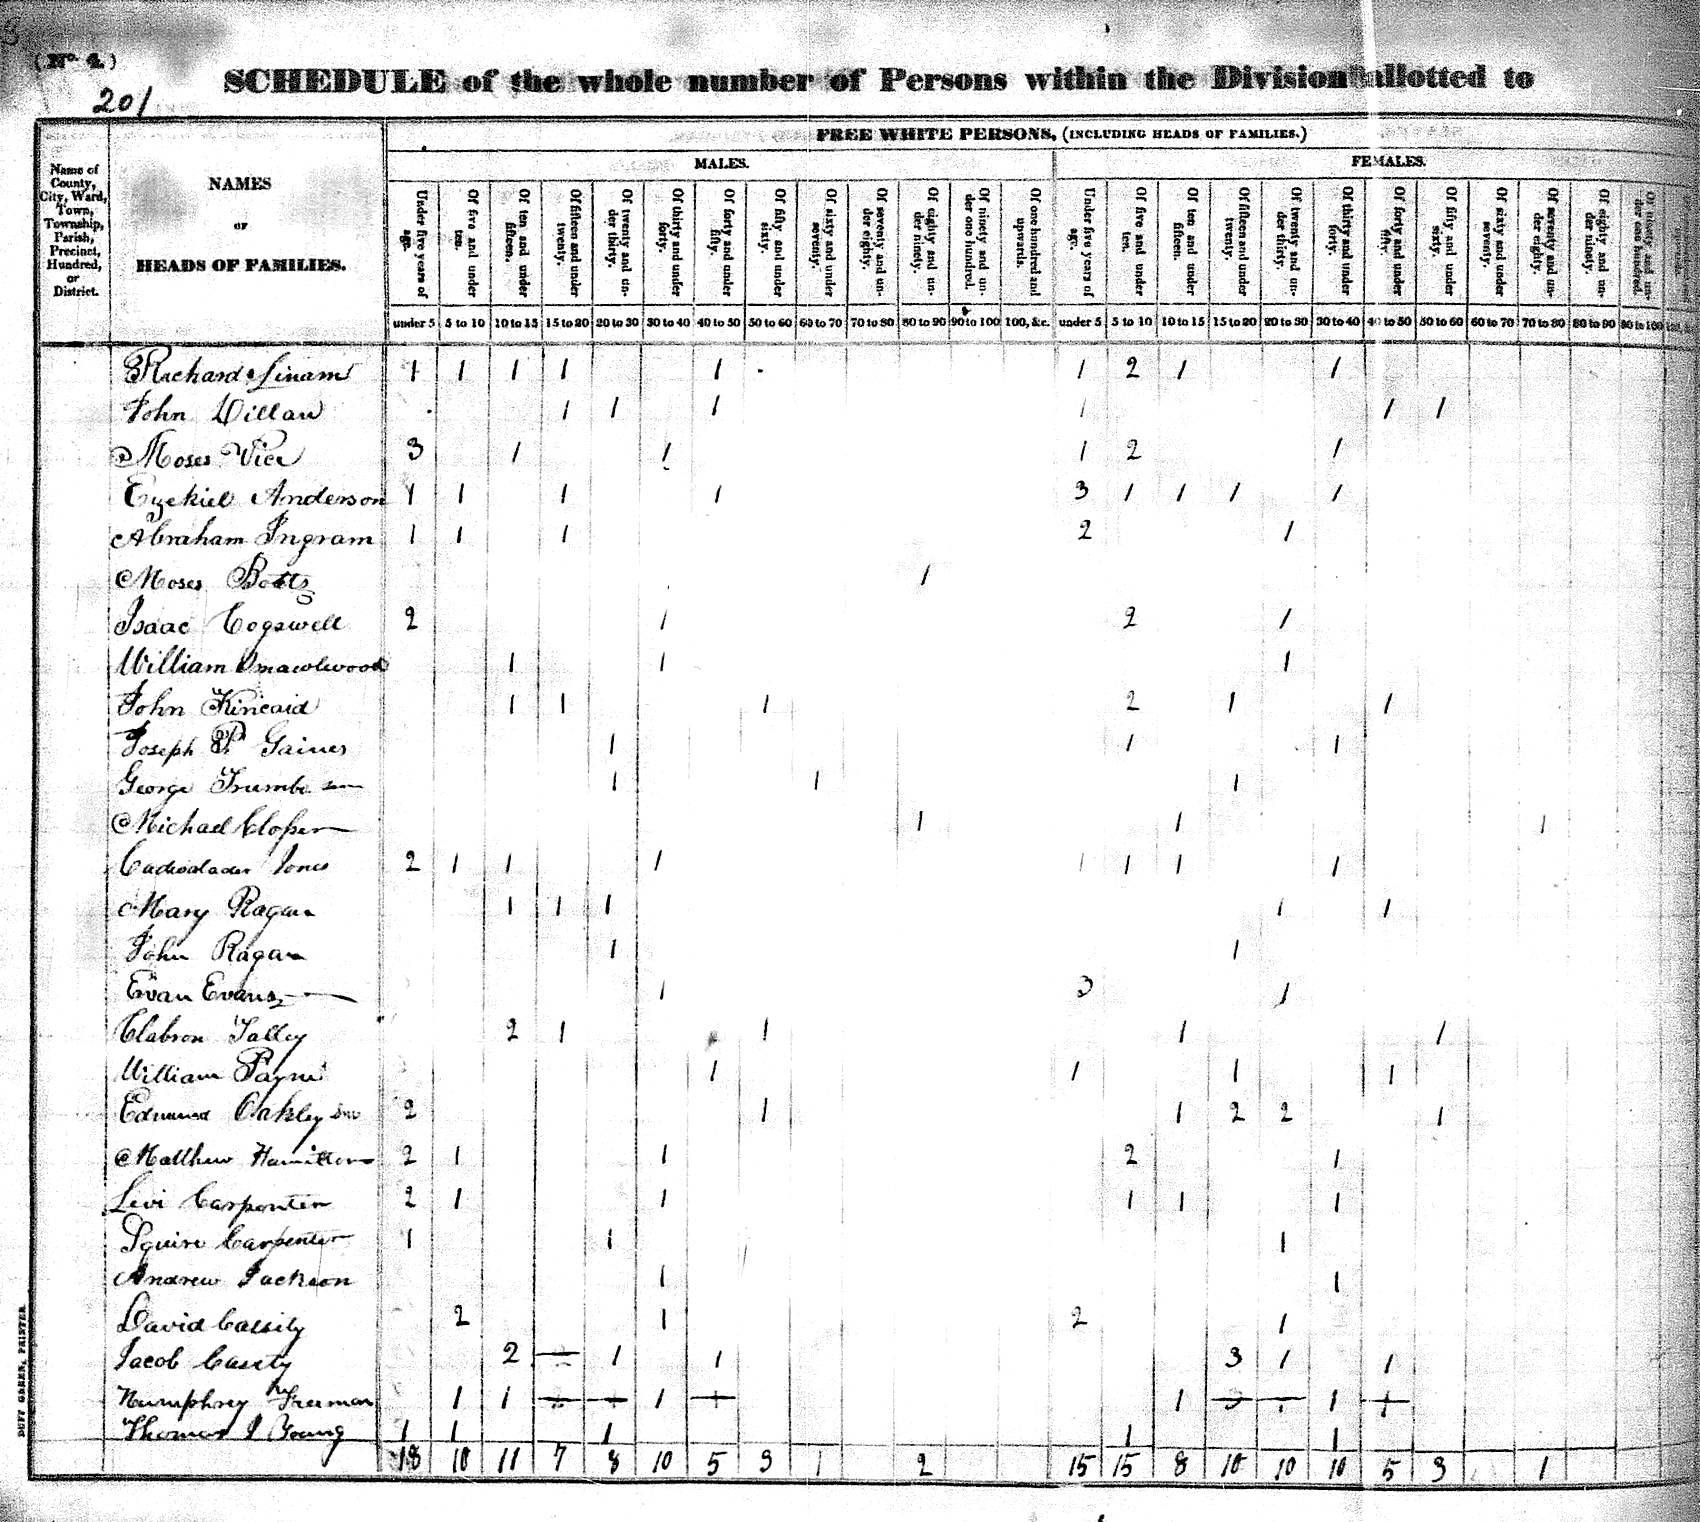 (No. 4.)
201
SCHEDULE of the whole number of Persons within the Division allotted to
FREE WHITE PERSONS, (INCLUDING HEADS OF FAMILIES.)
MALES. FEMALES.
Name of County, City, Ward, Town, Township, Parish, Precinct, Hundred, or District.
NAMES
OF
HEADS OF FAMILIES.
Under five years of age. Of five and under ten. Of ten and under fifteen. Of fifteen and under twenty. Of twenty and under thirty. Of thirty and under forty. Of forty and under fifty. Of fifty and under sixty. Of sixty and under seventy. Of seventy and under eighty. Of eighty and under ninety. Of ninety and under one hundred. Of one hundred and upwards. Under five years of age. Of five and under ten. Of ten and under fifteen. Of fifteen and under twenty. Of twenty and under thirty. Of thirty and under forty. Of forty and under fifty. Of fifty and under sixty. Of sixty and under seventy. Of seventy and under eighty. Of eighty and under ninety. Of ninety and under one hundred.
under 5 5 to 10 10 to 15 15 to 20 20 to 30 30 to 40 40 to 50 50 to 60 60 to 70 70 to 80 80 to 90 90 to 100 100, &c. under 5 5 to 10 10 to 15 15 to 20 20 to 30 30 to 40 40 to 50 50 to 60 60 to 70 70 to 80 80 to 90 90 to 100
Richard Linam 1 1 1 1 1 1 2 1 1
John 1 1 1 1 1 1
Moses Vice 3 1 1 1 2 1
Ezekiel Anderson 1 1 1 1 3 1 1 1 1
Abraham Ingram 1 1 1 2 1
Moses Botts 1
Isaac Cogswell 2 1 2 1
William Smawlwood 1 1 1
John Kincaid 1 1 1 2 1 1
Joseph P Gaines 1 1 1
George Trumbo 1 1 1
Michael 1 1 1
Jones 2 1 1 1 1 1 1 1
Mary Ragan 1 1 1 1 1
John Ragan 1 1
Evan Evans 1 3 1
Clabron Talley 2 1 1 1 1
William Payne 1 1 1 1
Edmund Oakley 2 1 1 2 2 1
Matthew Hamilton 2 1 1 2 1
Levi Carpenter 2 1 1 1 1 1
Squire Carpenter 1 1 1
Andrew Jackson 1 1
David Cassity 2 1 2 1
Jacob Cassity 2 1 1 3 1 1
Humphrey Freeman 1 1 1 1 1
Thomas J Young 1 1 1 1 1
18 10 11 7 8 10 5 3 1 2 15 15 8 10 10 10 5 3 1
DUFF GREEN, PRINTER